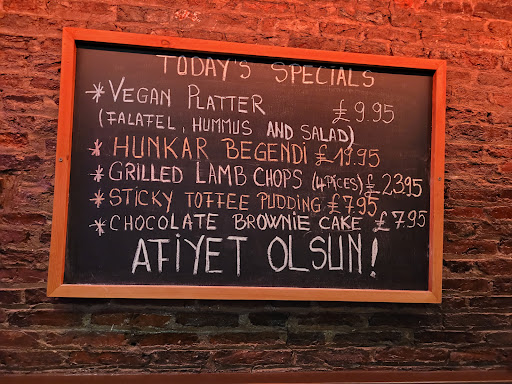 TODAY'S SPECIALS
* VEGAN PLATTER £9.95
(FALAFEL, HUMMUS AND SALAD)
* HUNKAR BEGENDI £19.95
* GRILLED LAMB CHOPS (4 PİCES) £23.95
* STICKY TOFFEE PUDDING £7.95
* CHOCOLATE BROWNIE CAKE £7.95
AFİYET OLSUN!